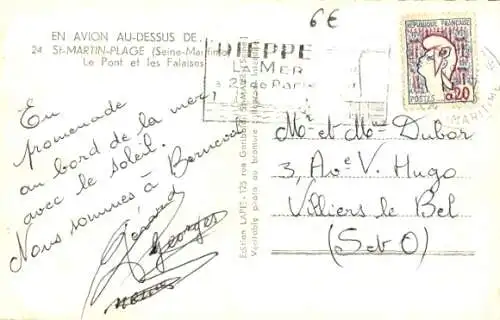 6€
EN AVION AU-DESSUS DE...
24 St-MARTIN-PLAGE (Seine-Maritime)
Le Pont et les Falaises
DIEPPE
LA MER
à 2h de Paris
REPUBLIQUE FRANÇAISE
POSTES 0,20
MARITIME
En
promenade
au bord de la mer,
avec le soleil.
Nous sommes à Berneval
Gérard
Georges
Edition LAPIE, 125 rue Garibaldi, St-MAUR (Seine)
Véritable photo au bromure
Mr et Mme Dubor
3, Ave V. Hugo
Villiers le Bel
(S et O)